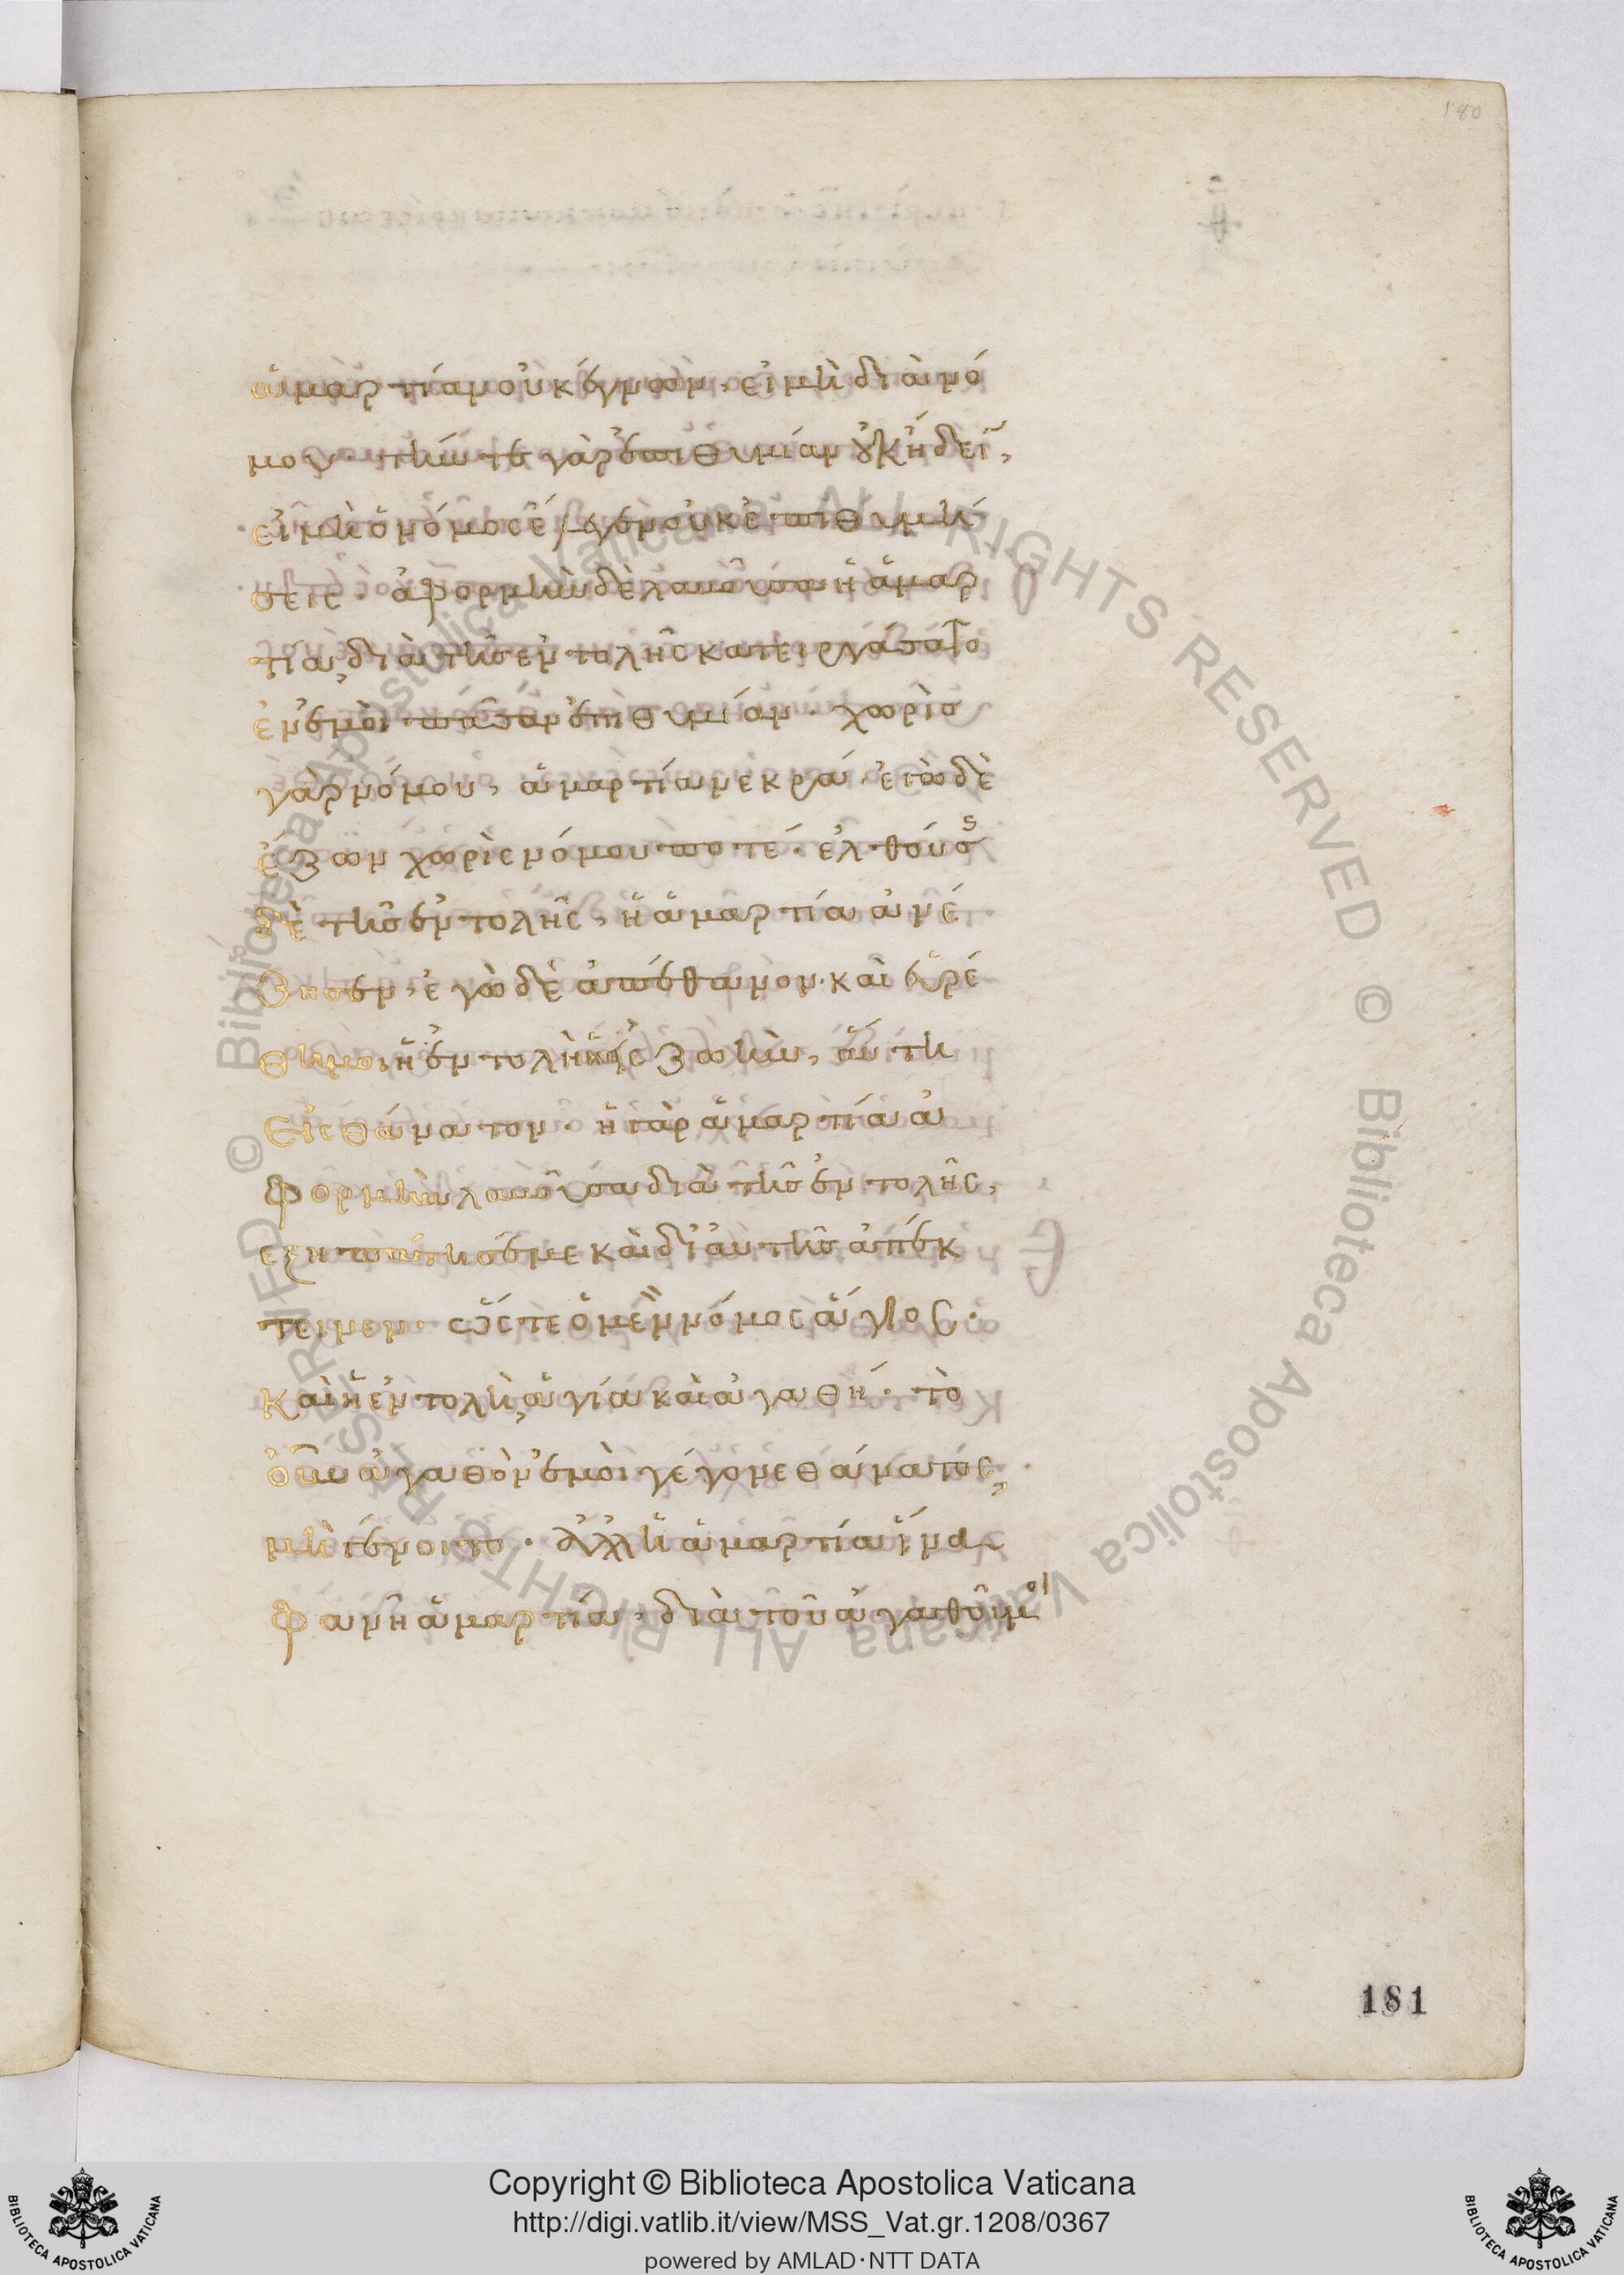 180
ἁμαρτίαν οὐκ ἔγνων, εἰ μὴ διὰ νό
μου· τήν τε γὰρ ἐπιθυμίαν οὐκ ἤδειν,
εἰ μὴ ὁ νόμος ἔλεγεν οὐκ ἐπιθυμή
σεις· ἀφορμὴν δὲ λαβοῦσα ἡ ἁμαρ
τία, διὰ τῆς ἐντολῆς κατειργάσατο
ἐν ἐμοὶ πᾶσαν ἐπιθυμίαν· χωρὶς
γὰρ νόμου, ἁμαρτία νεκρά· ἐγὼ δὲ
ἔζων χωρὶς νόμου ποτέ· ἐλθούσης
δὲ τῆς ἐντολῆς, ἡ ἁμαρτία ἀνέ
ζησεν, ἐγὼ δὲ ἀπέθανον· καὶ εὑρέ
θη μοι ἡ ἐντολὴ ἡ εἰς ζωήν, αὕτη
εἰς θάνατον· ἡ γὰρ ἁμαρτία ἀ
φορμὴν λαβοῦσα διὰ τῆς ἐντολῆς,
ἐξηπάτησέ με καὶ δι' αὐτῆς ἀπέκ
τεινεν· ὥστε ὁ μὲν νόμος ἅγιος·
καὶ ἡ ἐντολὴ, ἁγία καὶ ἀγαθή· τὸ
οὖν ἀγαθὸν ἐμοὶ γέγονε θάνατος,
μὴ γένοιτο· ἀλλ' ἡ ἁμαρτία ἵνα
φανῇ ἁμαρτία, διὰ τοῦ ἀγαθοῦ μοι
181
© Biblioteca Apostolica Vaticana ALL RIGHTS RESERVED © Biblioteca Apostolica Vaticana ALL RIGHTS RESERVED
Copyright © Biblioteca Apostolica Vaticana
http://digi.vatlib.it/view/MSS_Vat.gr.1208/0367
powered by AMLAD·NTT DATA
BIBLIOTECA APOSTOLICA VATICANA
BIBLIOTECA APOSTOLICA VATICANA